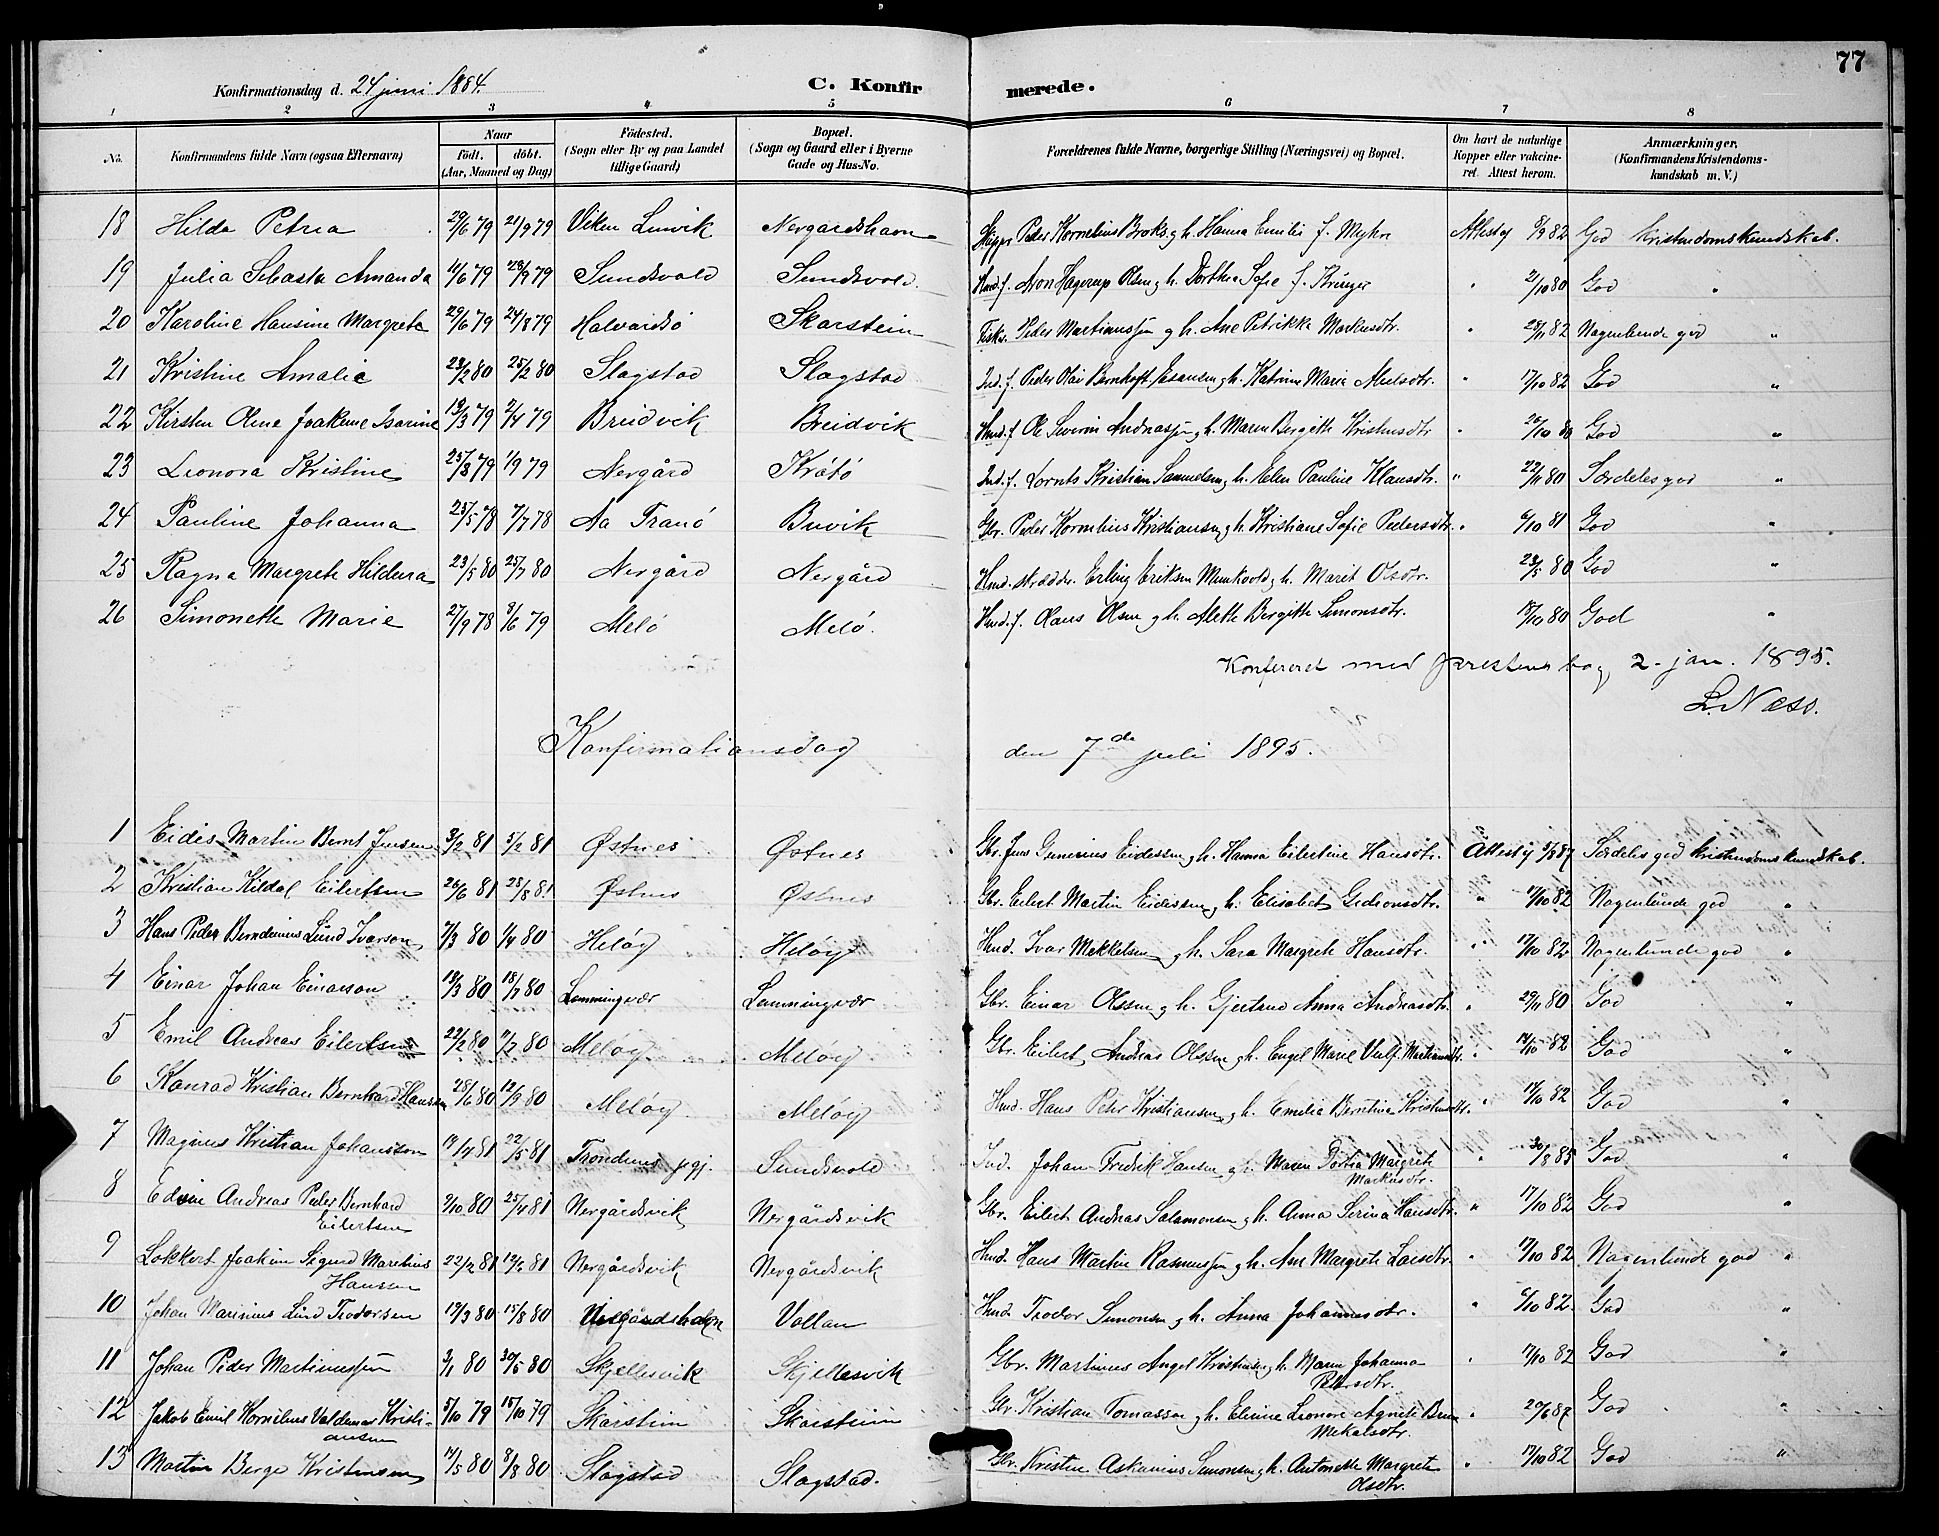 77
Konfirmationsdag d. 24 juni 1884. C. Konfirmerede.
1 2 3 4 5 6 7 8
No. Konfirmandens fulde Navn (ogsaa Efternavn) Naar födt. döbt. (Aar, Maaned og Dag) Födested. (Sogn eller By og paa Landet tillige Gaard) Bopæl. (Sogn og Gaard eller i Byerne Gade og Hus-No. Forældrenes fulde Navne, borgerlige Stilling (Næringsvei) og Bopæl. Om havt de naturlige Kopper eller vakcineret. Attest herom. Anmærkninger. (Konfirmandens Kristendomskundskab m. V.)
18 Hilda Petria 29/6 79 21/9 79 Viken Lenvik Nergårdshavn Skippr Peder Kornelius Broks g h. Hanna Emilie f. Myhre Attest af 8/9 82 God Kristendomskundskab.
19 Julia Sebasta Amanda 11/6 79 28/9 79 Sundsvold Sundsvold Hmd. f. Aron Hagerup Olsen g h. Dorthea Sofie f. Krüger " 21/10 80 God "
20 Karoline Hansine Margreta 29/6 79 24/8 79 Halvardsö Skarstein Fisker. Peder Martinussen g h. Ane Petrikke Markusdtr. " 28/11 82 Nogenlunde god "
21 Kristine Amalie 23/2 80 25/2 80 Slagstad Slagstad Ind. f. Peder Olai Bernhoft Esausen g h. Katrine Marie Abelsdtr. " 17/10 82 God "
22 Kirsten Oline Joakime Isarine 19/3 79 2/4 79 Breidvik Breidvik Hmd. f. Ole Severin Andreassen g h. Maren Bergitte Kristensdtr " 26/10 80 God "
23 Leonora Kristine 25/8 79 1/9 79 Nergård Krötö Ind. f. Lornts Kristian Samuelsen g h. Elen Pauline Klausdtr. " 22/11 80 Særdeles god "
24 Pauline Johanna 23/5 78 7/7 78 Aa Tranö Buvik Gbr. Peder Kornelius Kristiansen g h. Kristiane Sofie Pedersdtr. " 6/10 81 God "
25 Ragna Margrete Hildura 23/5 80 25/7 80 Nergård Nergård Hmd. skrædder. Erling Eriksen Munkvold g h. Marit Olsdtr. 23/5 80 God "
26 Simonette Marie 27/9 78 8/6 79 Melö Melö. Hmd. f. Claus Olsen g h. Alette Bergitte Simonsdtr. 18/10 80 God "
Konfereret med Prestens bog, 2. jan. 1895.
L. Næss.
Konfirmationsdag den 7de juli 1895.
1 Eidis Martin Bernt Jensen 3/2 81 5/2 81 Østnes Østnes Gbr. Jens Generius Eidissen g h. Hanna Eilertine Hansdtr. Attest af 5/8 87 Særdeles god Kristendomskundskab.
2 Kristian Kildal Eilertsen 26/6 81 28/8 81 Østnes Østnes Gbr. Eilert Martin Eidissen g h. Elisabet Gedionsdtr. " 17/10 82 Nogenlunde god "
3 Hans Peder Berndinius Lund Ivarson 7/3 80 1/4 80 Heløy Heløy Hmd. Ivar Mekkelsen g h. Sara Margrete Hansdtr. " 17/10 82 Nogenlunde god "
4 Einar Johan Einarson 19/3 80 18/7 80 Lemmingvær Lemmingvær Gbr. Einar Olssen g h. Gjertrud Anna Andreasdtr. " 29/11 80 God "
5 Emil Andreas Eilertsen 22/2 80 7/7 80 Meløy Meløy Gbr. Eilert Andreas Olssen g h. Engel Marie Vulf. Martinusdtr. " 14/10 82 God "
6 Konrad Kristian Bernhard Hanssen 28/6 80 12/9 80 Meløy Meløy Hmd. Hans Peter Kristiansen g h. Emelie Berntine Kristensdtr. " 17/10 82 God "
7 Magnus Kristian Johansson 14/4 81 22/5 81 Trondenes pgj. Sundsvold Ind. Johan Fredrik Hansen g h. Maren Dortea Margrete Markusdtr. " 30/8 85 God "
8 Edvin Andreas Peder Bernhard Eilertsen 9/10 80 25/4 81 Nergårdsvik Nergårdsvik Gbr. Eilert Andreas Salamonsen g h. Anna Serina Hansdtr. " 17/10 82 God "
9 Lokkert Joakim Sigurd Martinus Hanson 22/2 81 12/6 81 Nergårdsvik Nergårdsvik Hmd. Hans Martin Rasmussen g h. Ane Margrete Larsdtr. " 17/10 82 Nogenlunde god "
10 Johan Marinius Lund Teodorsen 17/3 80 15/8 80 Vollan Hmd. Teodor Simonsen g h. Anna Johannesdtr. " 6/10 82. God "
11 Johan Peder Martinussen 3/1 80 30/5 80 Skjellesvik Skjellesvik Gbr. Martinus Angel Kristensen g h. Maren Johanna Petersdtr. " 17/10 82 God "
12 Jakob Emil Kornilius Valdemar Kristiansen 5/10 79 15/10 79 Skarstein Skarstein Gbr. Kristian Tomassen g h. Eline Leonore Agnete Brun Mekalsdtr. " 20/6 87 God "
13 Martin Berge Kristensen 14/5 80 8/8 80 Slagstad Slagstad. Gbr. Kristen Askanius Simonsen g h. Antonette Margrete Olsdtr. " 17/10 82 God "